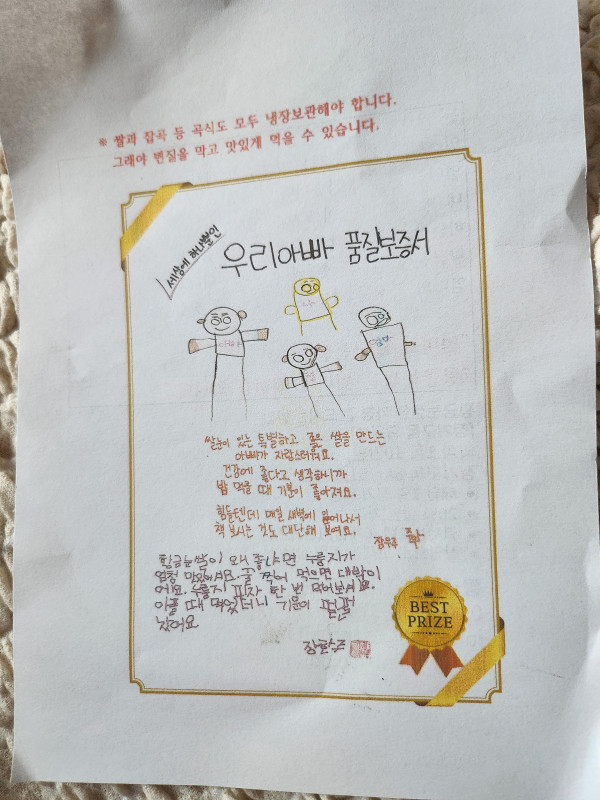 ※ 쌀과 잡곡 등 곡식도 모두 냉장보관해야 합니다.
그래야 변질을 막고 맛있게 먹을 수 있습니다.
세상에 하나뿐인
우리아빠 품질보증서
나
아빠
엄마
쌀눈이 있는 특별하고 좋은 쌀을 만드는
아빠가 자랑스러워요.
건강에 좋다고 생각하니까
밥 먹을 때 기분이 좋아져요.
힘들텐데 매일 새벽에 일어나서
책 보시는 것도 대단해 보여요.
황금눈쌀이 왜 좋냐면 누룽지가
엄청 맛있어서요. 꿀 찍어 먹으면 대박이
에요. 누룽지 피자 한 번 먹어보세요.
아플 때 먹었더니 기운이 펄펄
났어요
BEST
PRIZE